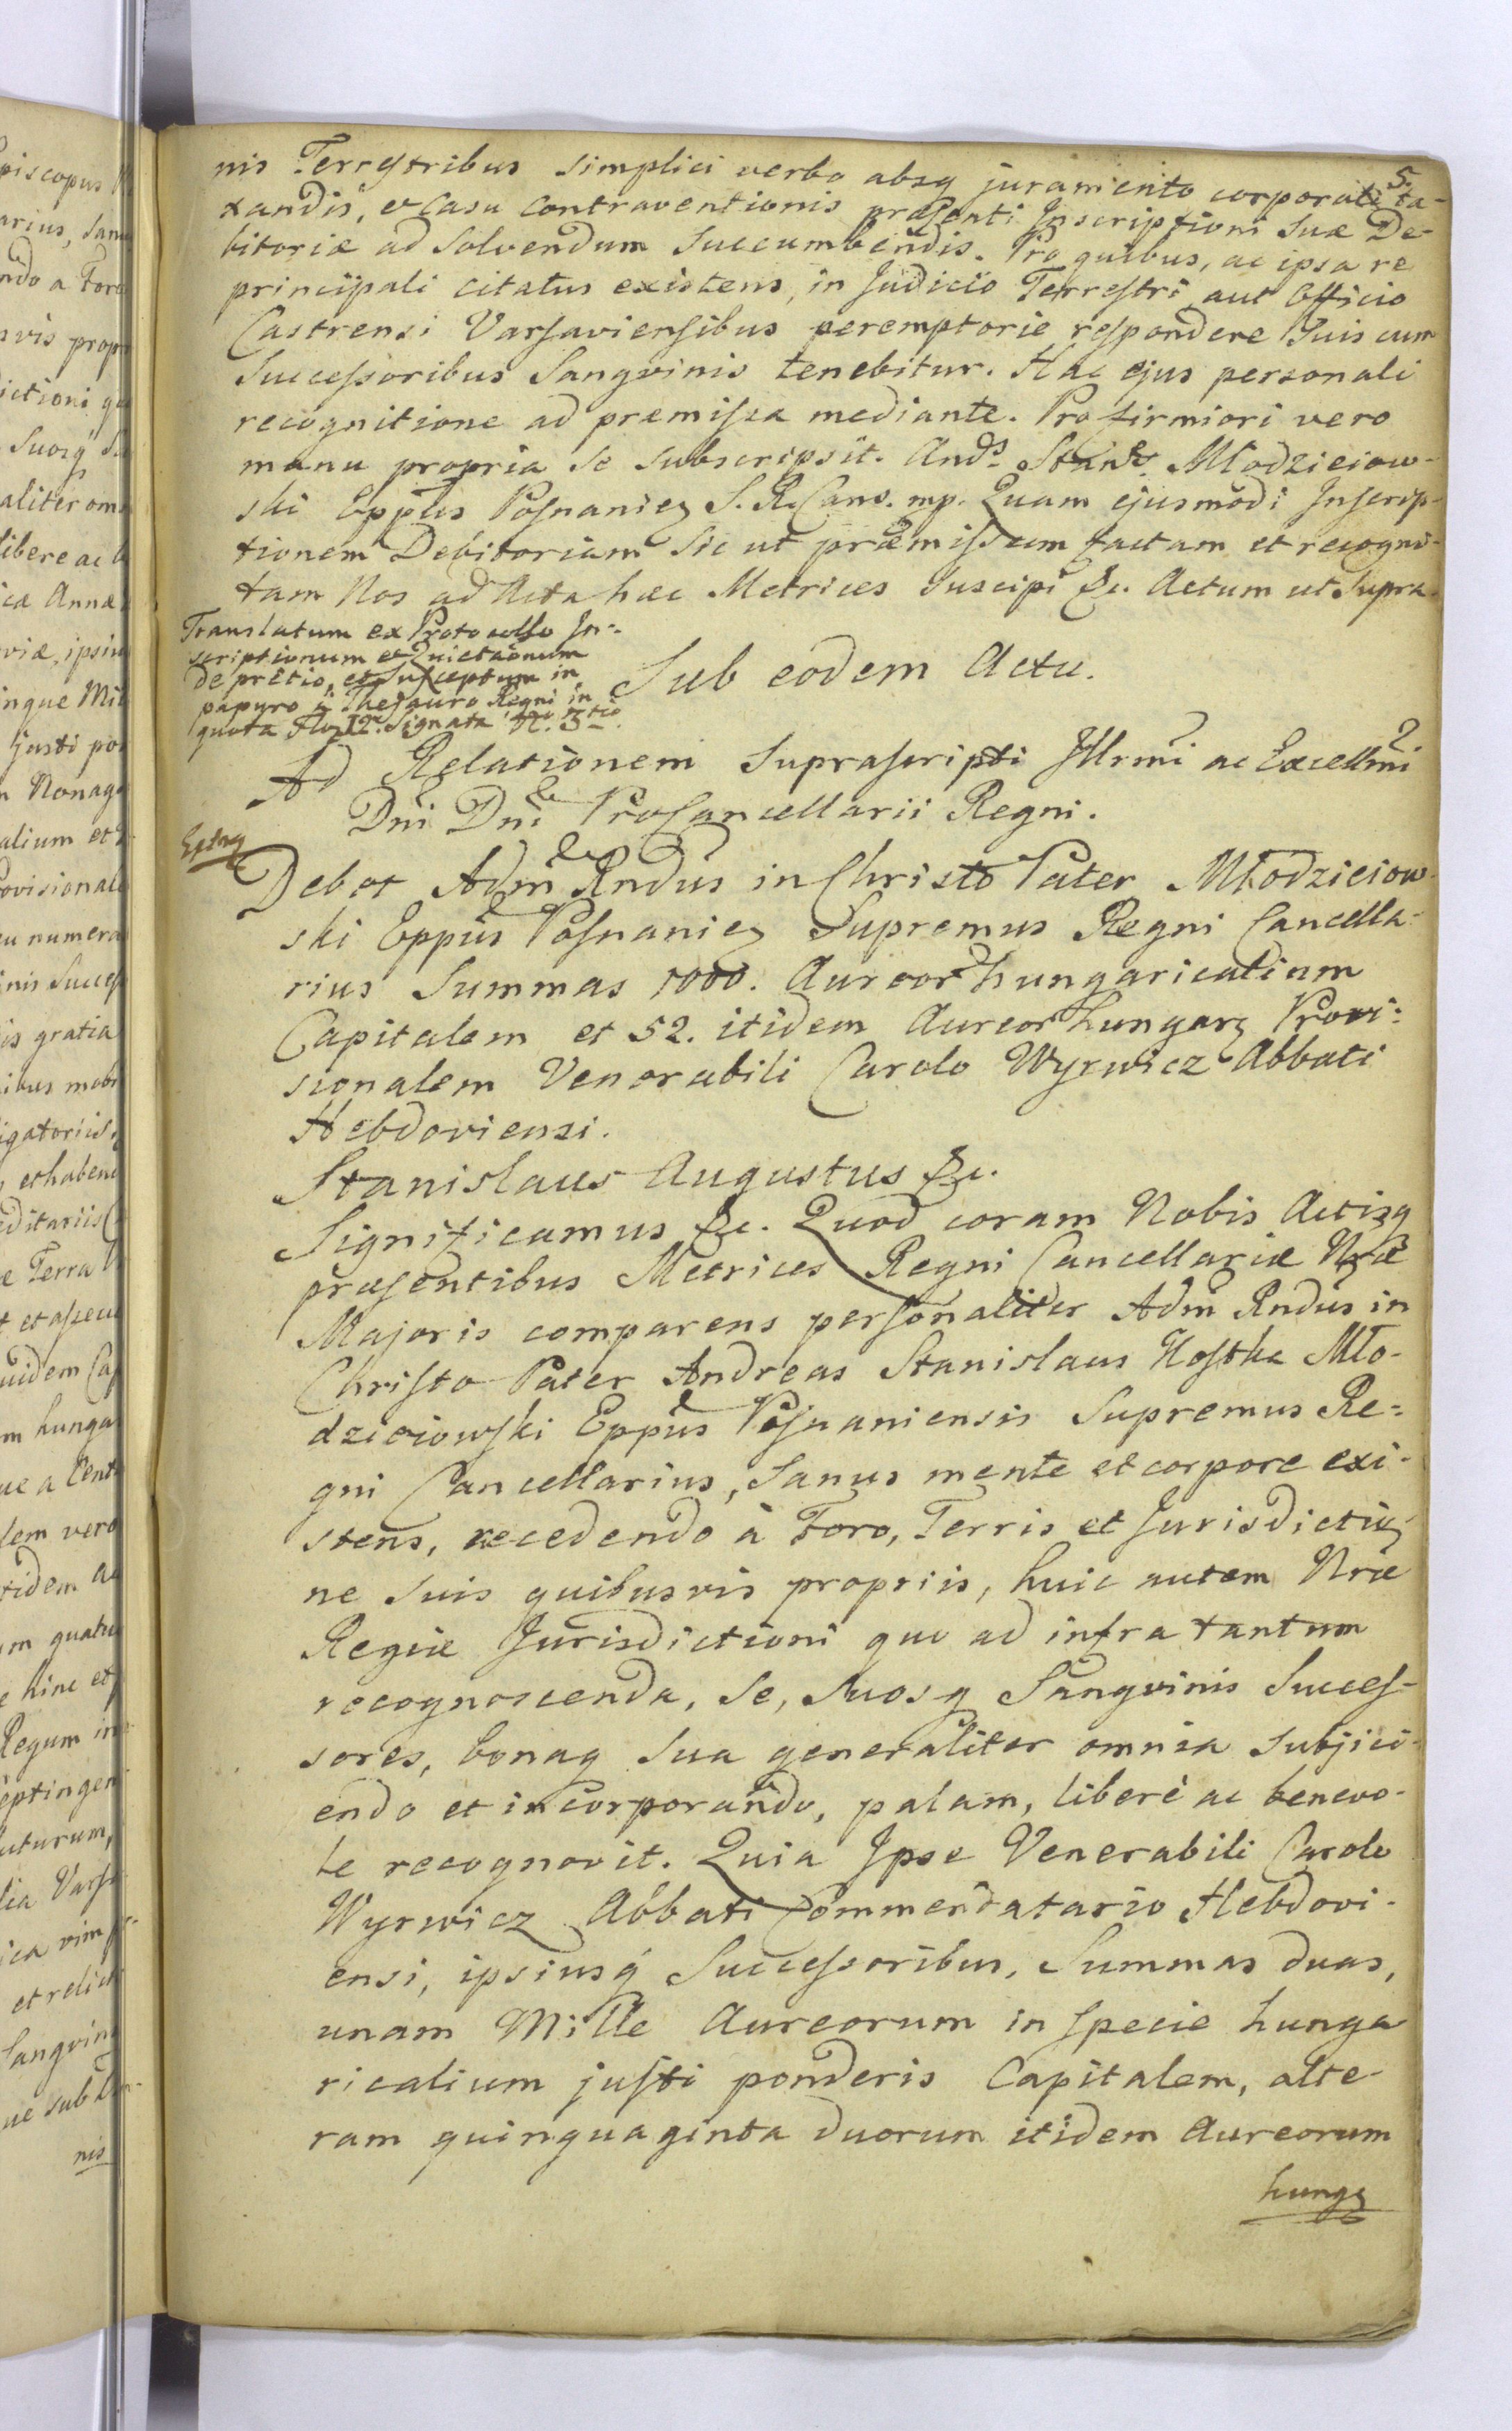 5.
nis Terrestribus simplici verbo absq juramento corporali ta-
xandis, et casu contraventionis præsenti Inscriptioni suæ De-
bitoriæ ad solvendum succumbendis. Pro quibus, ac ipsa re
principali citatus existens, in Judicio Terrestri aut Officio
Castrensi Varsaviensibus peremptorie respondere suis cum
Successoribus Sangvinis tenebitur. Hac ejus personali
recognitione ad præmissa mediante. Pro firmiori vero
manu propria se subscripsit. Andr. Stans. Młodzieiow-
ski Eppus Posnaniens S. R. Canc. mp. Quam ejusmodi Inscrip-
tionem Debitoriam sic ut præmissum factam et recogni-
tam Nos ad Acta hæc Metrices suscipi &c. Actum ut supra
Translatum ex Protocollo In-
scriptionum et Quietaonum
de pretio, et susceptum in
papyro à Thesauro Regni in
quota Flor. 12. signata N. 3tio
Sub eodem Actu.
Ad Relationem suprascripti Illrmi ac Excellmi
Dni Dni ProCancellarii Regni.
Debet Adm Rndus in Christo Pater Młodzieiow-
ski Eppus Posnanien Supremus Regni Cancella-
rius Summas 1000. Aureor hungaricalium
Capitalem et 52. itidem Aureor hungar Provi-
sionalem Venerabili Carolo Wyrwicz Abbati
Hebdoviensi.
Stanislaus Augustus &c.
Significamus &c. Quod coram Nobis Actisq
præsentibus Metrices Regni Cancellariæ Nræ
Majoris comparens personaliter Adm Rndus in
Christo Pater Andreas Stanislaus Kostka Mło-
dzieiowski Eppus Posnaniensis Supremus Re-
gni Cancellarius, sanus mente et corpore exi-
stens, recedendo à Foro, Terris et Jurisdictio-
ne suis quibusvis propriis, huic autem Nræ
Regiæ Jurisdictioni quo ad infra tantum
recognoscenda, se, suosq Sangvinis Succes-
sores, bonaq sua generaliter omnia subjici-
endo et incorporando, palam, liberè ac benevo-
le recognovit. Quia Ipse Venerabili Carolo
Wyrwicz Abbati Commendatario Hebdovi-
ensi, ipsiusq Successoribus, Summas duas,
unam Mille Aureorum in specie hunga
ricalium justi ponderis Capitalem, alte-
ram quinquaginta duorum itidem Aureorum
hung